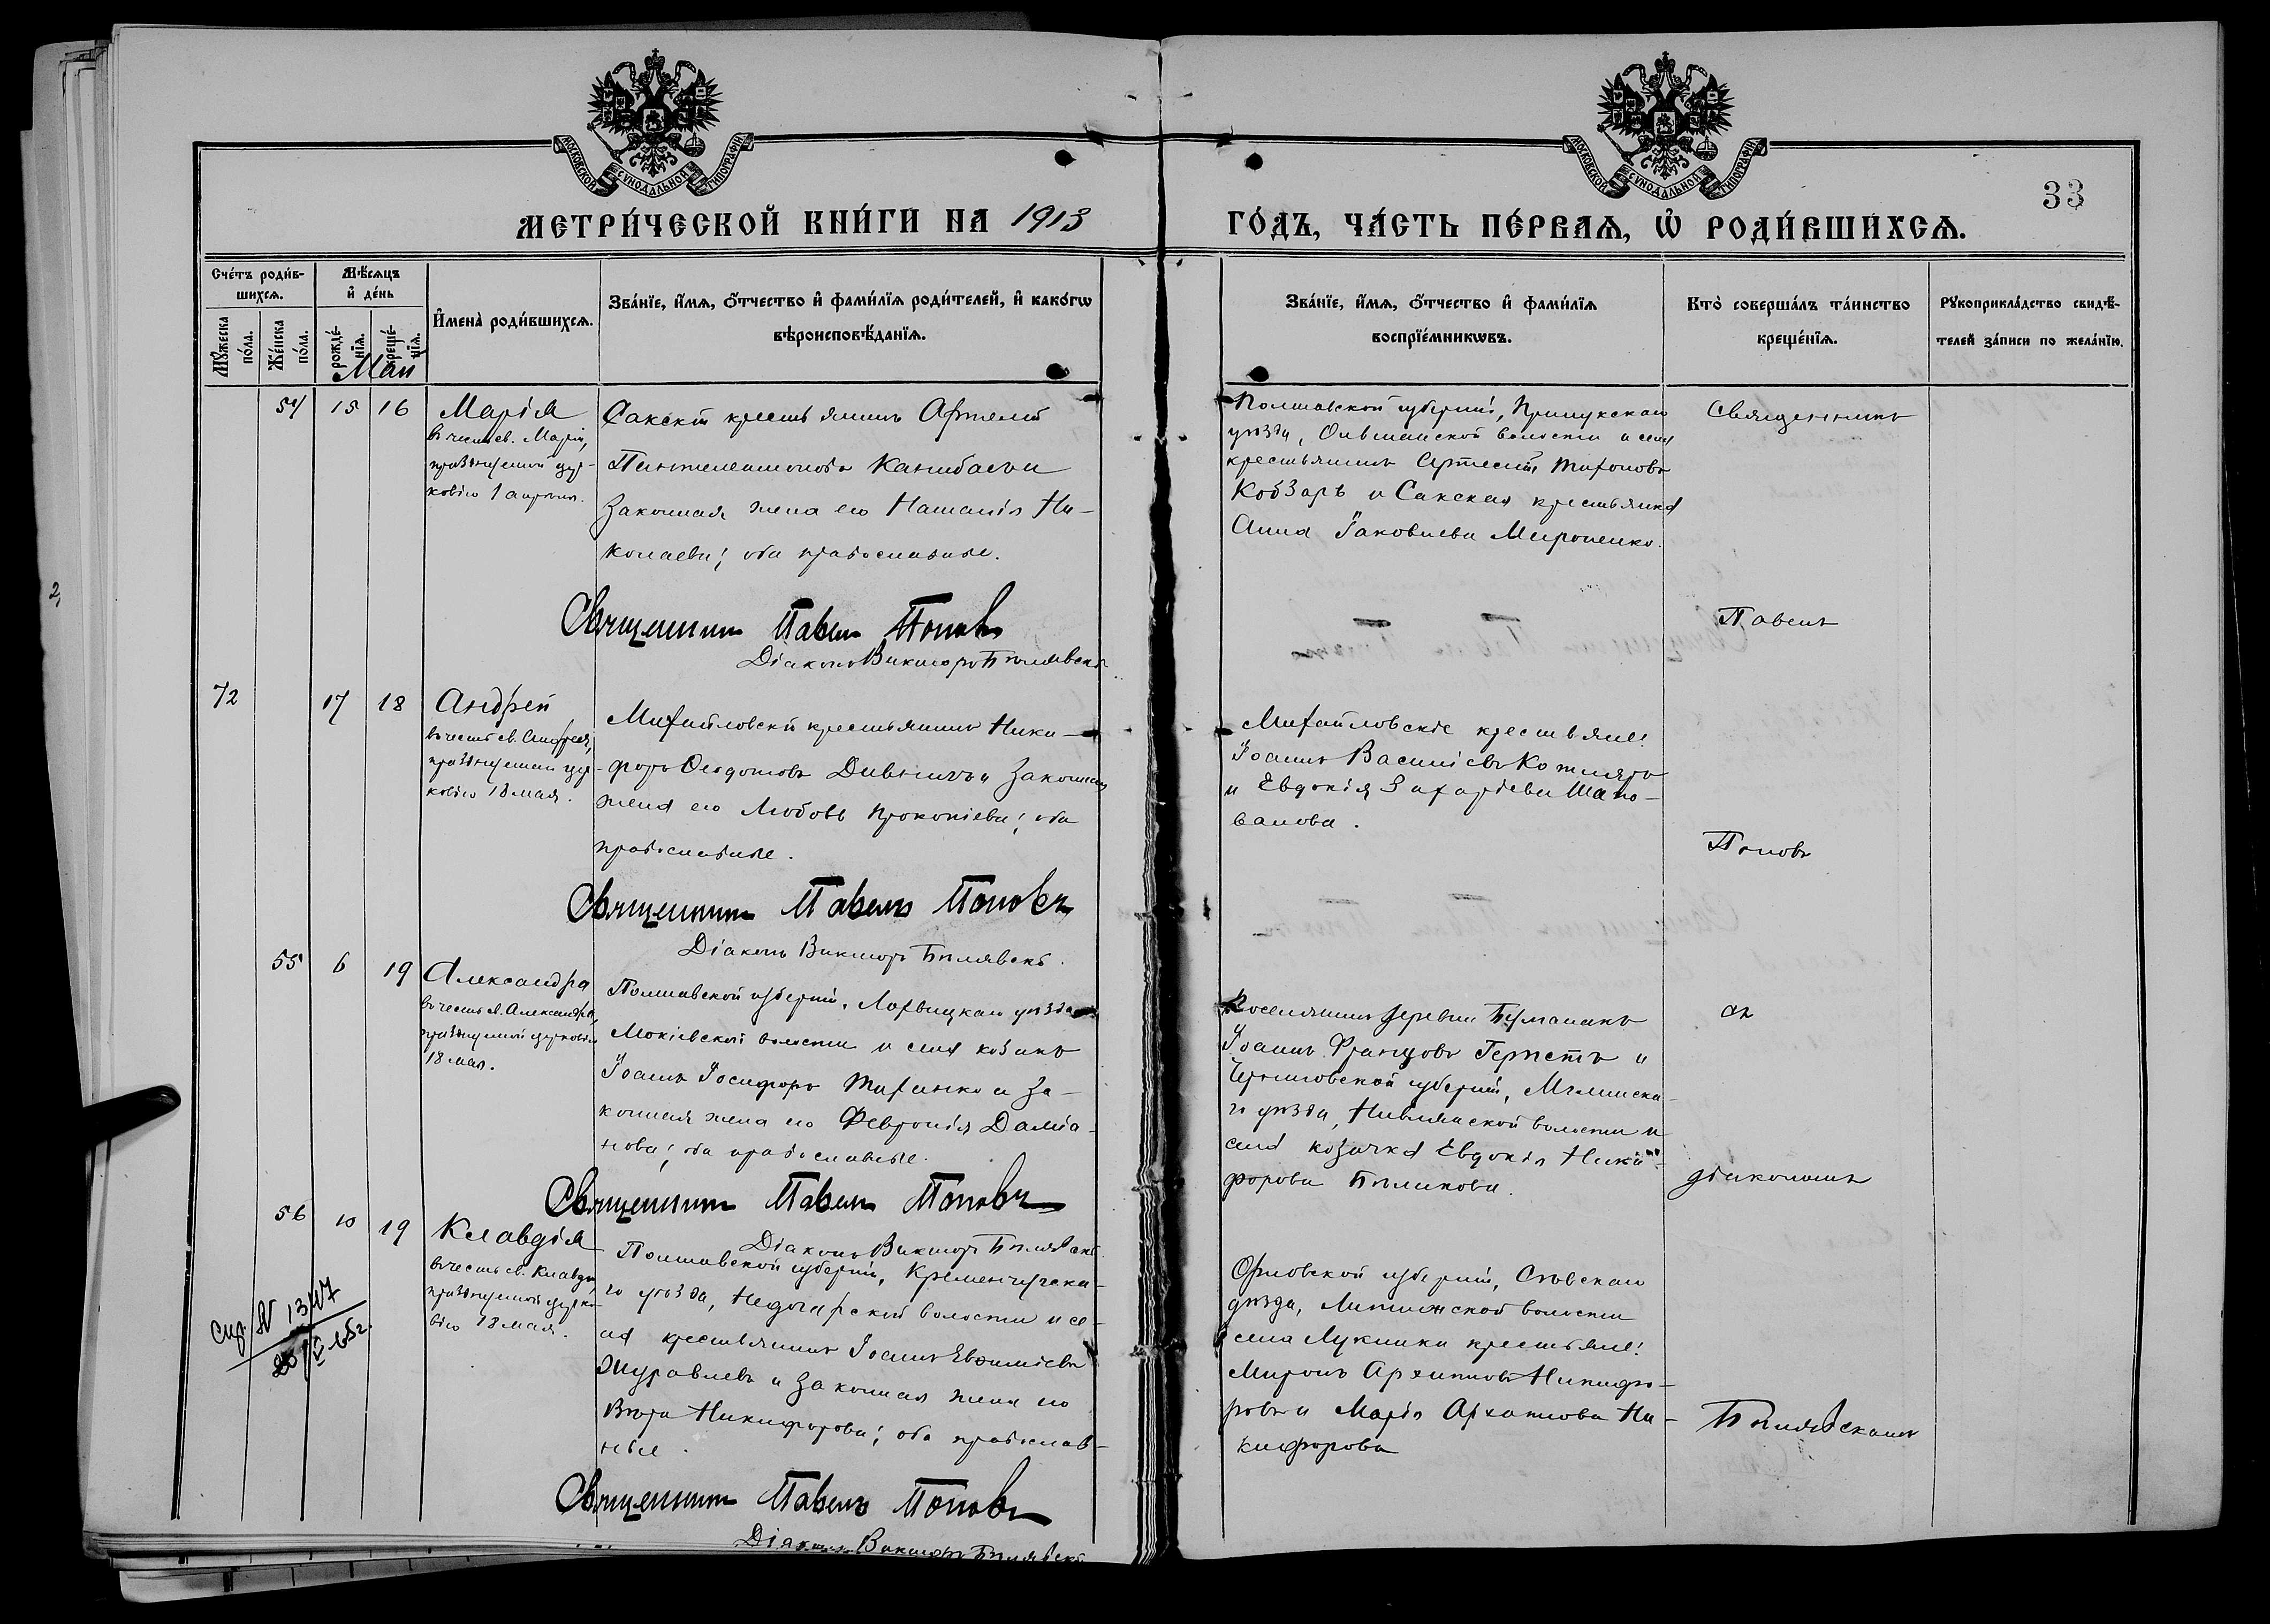 МОСКОВСКОЙ СУНОДАЛЬНОЙ ТИПОГРАФІИ
МОСКОВСКОЙ СУНОДАЛЬНОЙ ТИПОГРАФІИ
33
МЕТРИ́ЧЕСКОЙ КНИ́ГИ НА 1913 ГО́ДЪ, ЧА́СТЬ ПЕ́РВАѦ, Ѡ҆ РОДИ́ВШИХСѦ.
Сче́тъ роди́в-
шихсѧ.
Мꙋ́жеска по́ла.
Же́нска по́ла.
Мѣ́сѧцъ
и҆ де́нь
рожде́-
нїѧ.
креще́-
нїѧ.
Май
И҆мена̀ роди́вшихсѧ.
Зва́нїе, и҆́мѧ, ѻ҆́тчество и҆ фами́лїѧ роди́телей, и҆ како́гѡ
вѣроисповѣ́данїѧ.
Зва́нїе, и҆́мѧ, ѻ҆́тчество и҆ фами́лїѧ
воспрїе́мникѡвъ.
Кто̀ соверша́лъ та́инство
креще́нїѧ.
Рꙋкоприкла́дство свидѣ́-
телей за́писи по жела́нїю.
54 15 16
Марія
въ честь св. Маріи,
празднуемой цер-
ковію 1 апрѣля.
Сакскій крестьянинъ Артемій
Пантелеимоновъ
Законная жена его Наталія Ни-
колаева; оба православные.
Священникъ Павелъ Поповъ
Діаконъ Викторъ Бѣлявскій
Полтавской губерніи, Прилукскаго
уѣзда, Ольшанской волости и села
крестьянинъ Артемій Тихоновъ
Кобзарь и Сакская крестьянка
Анна Іаковлева Мироненко.
Священникъ
Павелъ
72 17 18
Андрей
въ честь св. Андрея,
празднуемаго цер-
ковію 18 мая.
Михайловскій крестьянинъ Ники-
форъ Ѳеодотовъ и законная
жена его Любовь Прокопіева; оба
православные.
Священникъ Павелъ Поповъ
Діаконъ Викторъ Бѣлявскій.
Михайловскіе крестьяне:
Іоаннъ Василіевъ Котляръ
и Евдокія Захаріева Шапо-
валова.
Поповъ
55 6 19
Александра
въ честь св. Александры,
празднуемой церковію
18 мая.
Полтавской губерніи, Лохвицкаго уѣзда
Мокіевской волости и села козакъ
Іоаннъ Іосифовъ Тихенко и за-
конная жена его Февронія Даміа-
нова; оба православные.
Священникъ Павелъ Поповъ
Діаконъ Викторъ Бѣлявскій.
Поселянинъ деревни
Іоаннъ Францовъ и
Черниговской губерніи, Мглинска-
го уѣзда, Нивлянской волости и
села козачка Евдокія Ники-
форова Бѣликова.
съ
діакономъ
56 10 19
Клавдія
въ честь св. Клавдіи,
празднуемой церко-
вію 18 мая.
Полтавской губерніи, Кременчугска-
го уѣзда, Недогарской волости и се-
ла крестьянинъ Іоаннъ Евѳиміевъ
Журавлевъ и законная жена его
Вѣра Никифорова; оба православ-
ные.
Священникъ Павелъ Поповъ
Діаконъ Викторъ Бѣлявскій
Орловской губерніи, Сѣвскаго
уѣзда, Литижской волости
села Лукинки крестьяне:
Миронъ Архиповъ Никифо-
ровъ и Марія Ни-
кифорова
Бѣлявскимъ
Спр. № 1347